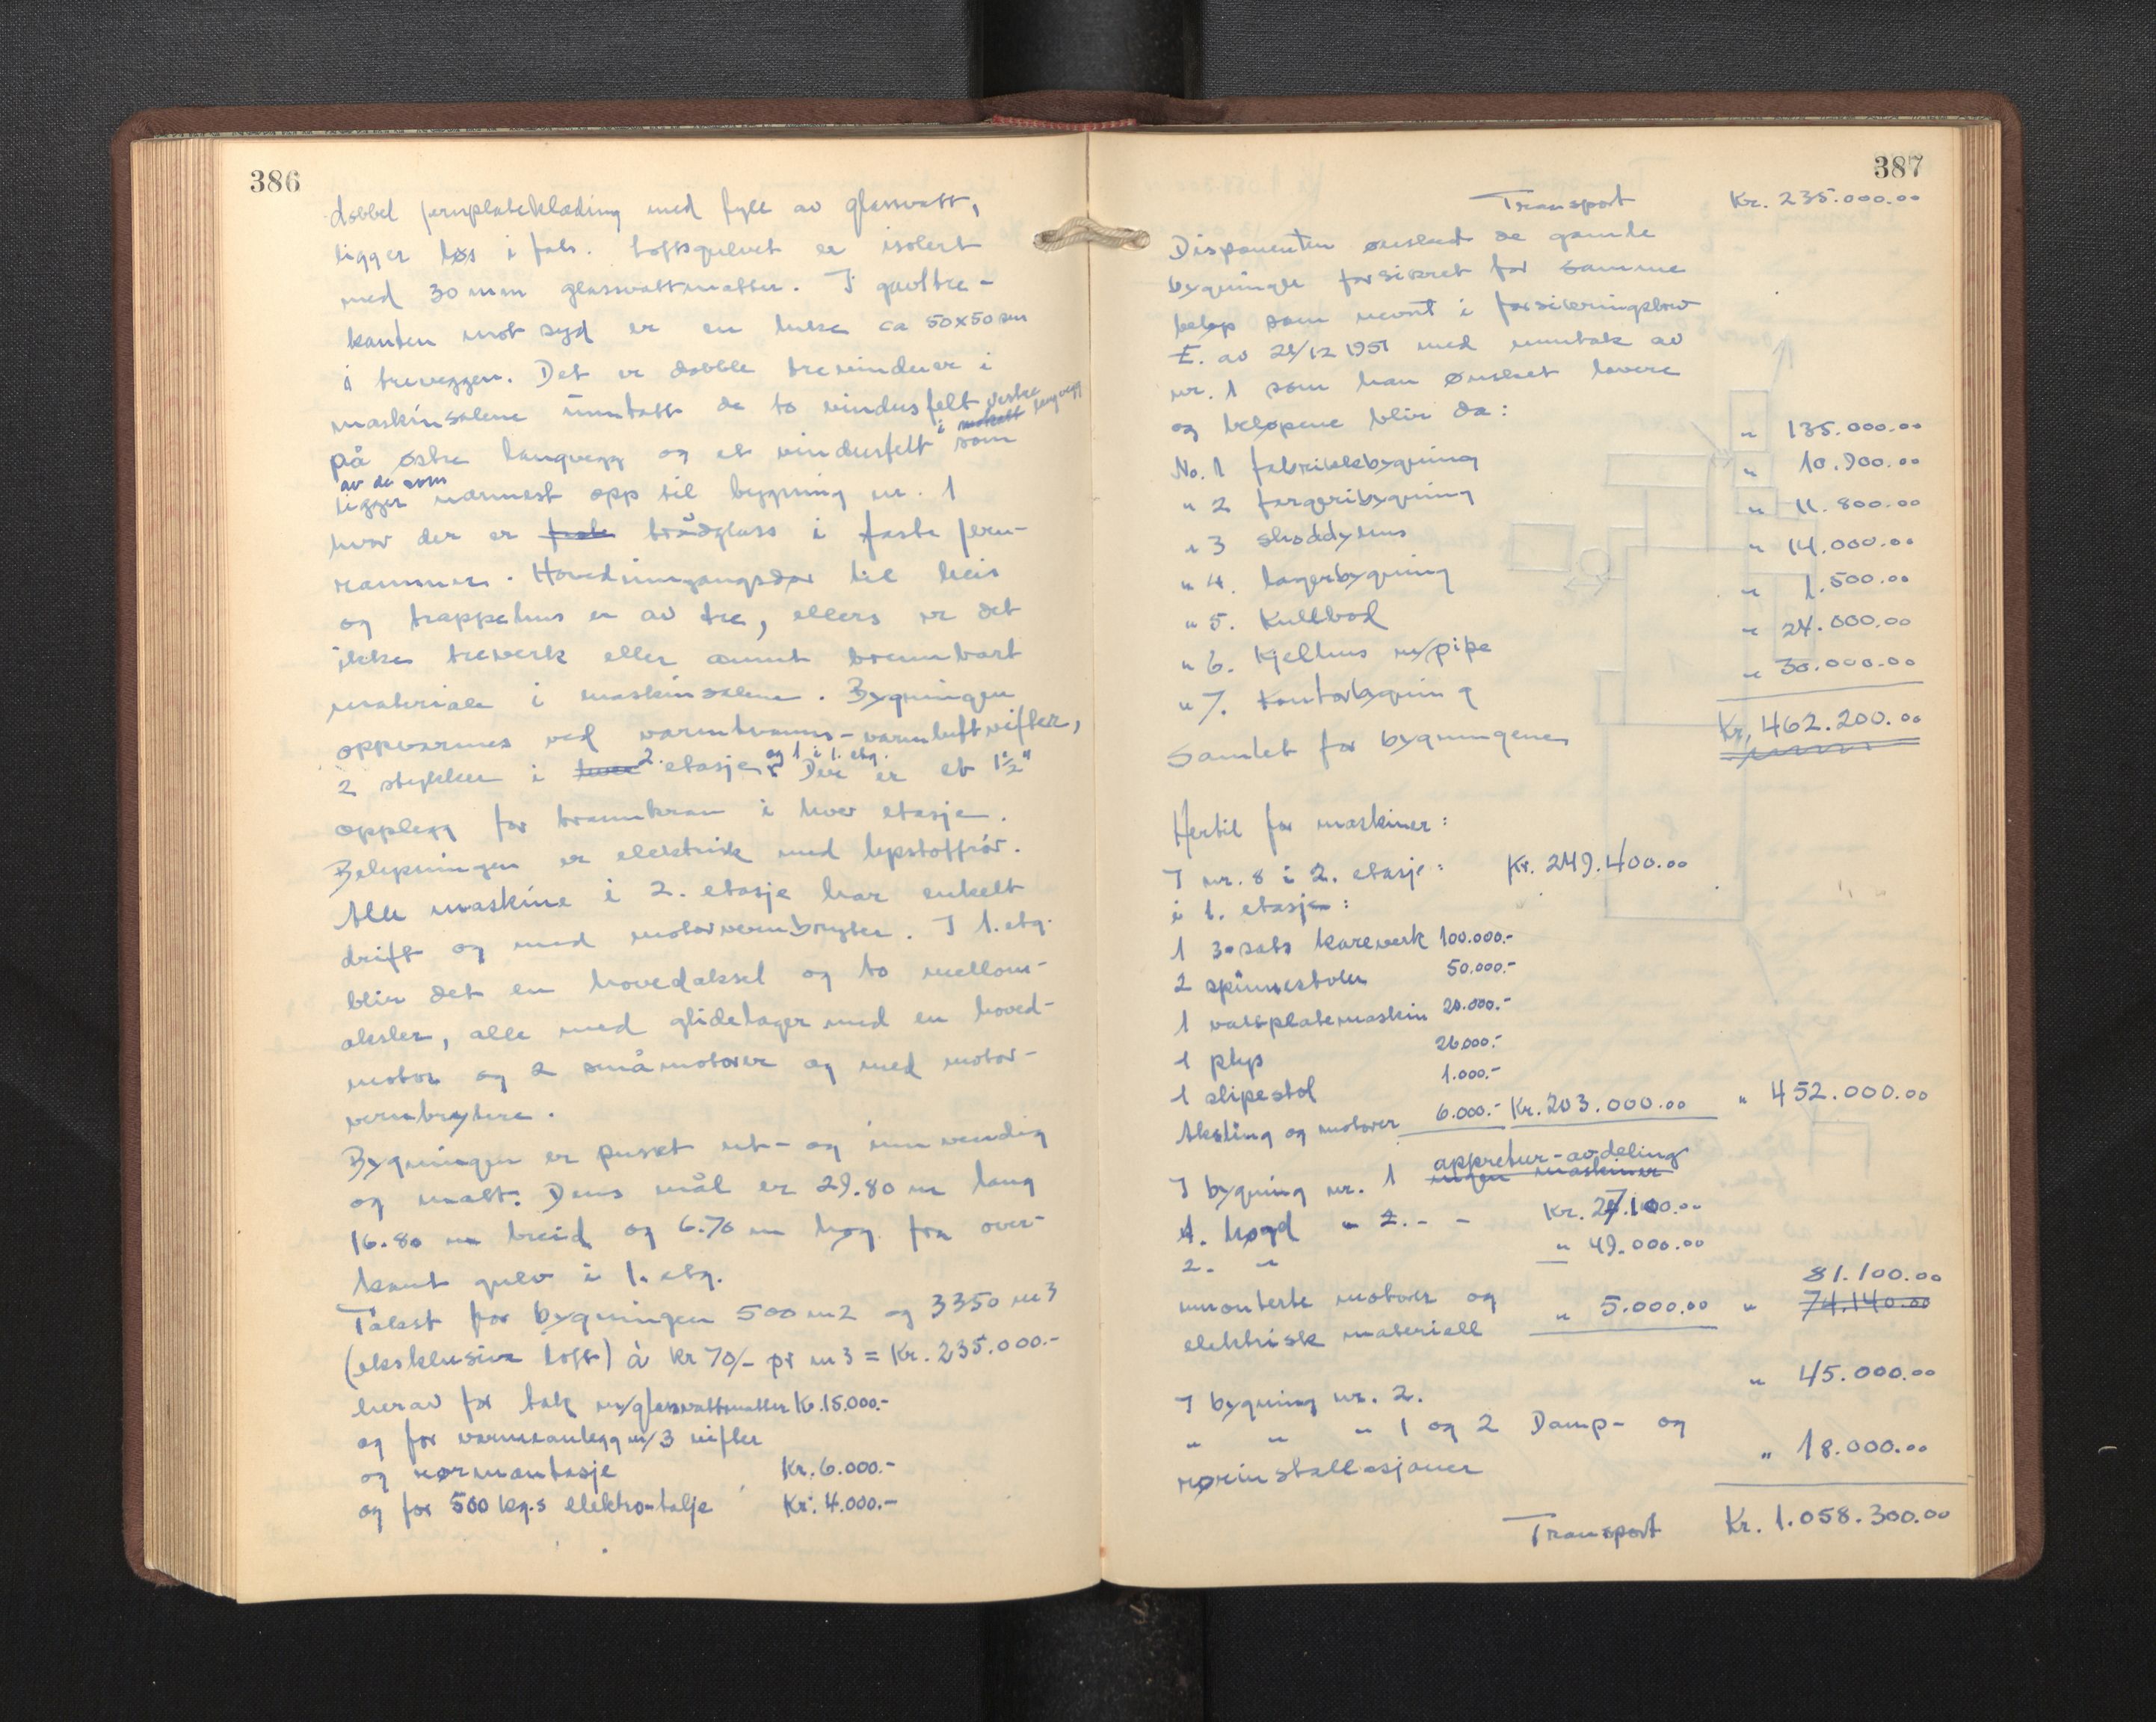 386
dobbel jernplateklæding med fyll av glassvatt,
ligger løs i fals. Loftsgulvet er isolert
med 30 mm glassvattmatter. I gavltre-
kanten mot syd er en luke ca 50x50 cm
i treveggen. Det er doble trevinduer i
maskinsalene unntatt de to vindusfelt
på østre langvegg og et vindusfelt i vestre langvegg som
av de som
ligger nærmest opp til bygning nr. 1
hvor der er trådglass i faste jern-
rammer. Hovedinngangsdør til heis
og trappehus er av tre, ellers er det
ikke treverk eller annet brennbart
materiale i maskinsalene. Bygningen
oppvarmes ved varmtvanns-varmluftvifter,
2 stykker i 2. etasje og 1 i 1. etg. Der er et 1½"
opplegg for brannkran i hver etasje.
Belysningen er elektrisk med lysstoffrør.
Alle maskine i 2. etasje har enkelt
drift og med motorvernbryter. I 1. etg.
blir det en hovedaksel og to mellom-
aksler, alle med glidelager med en hoved-
motor og 2 småmotorer og med motor-
vernbrytere.
Bygningen er pusset ut- og innvendig
og malt. Dens mål er 29.80 m lang
16.80 m breid og 6.70 m høg fra over-
kant gulv i 1. etg.
Takst for bygningen 500 m2 og 3350 m3
(eksklusive loft) à kr 70/- pr m3 = Kr. 235.000.-
herav for tak m/glassvattmatter Kr. 15.000.-
og for varmeanlegg m/3 vifter
og rørmontasje Kr. 6.000.-
og for 500 kg.s elektro-talje Kr. 4.000.-
387
Transport Kr. 235.000.00
Disponenten ønsked de gamle
bygninger forsikret for samme
beløp som nevnt i forsikringsbrev
E. av 28/12 1951 med unntak av
nr. 1 som han ønsket lavere
og beløpene blir da:
No. 1 fabrikkbygning " 135.000.00
" 2 fargeribygning " 10.900.00
" 3 shoddyhus " 11.800.00
" 4. lagerbygning " 14.000.00
" 5. Kullbod " 1.500.00
" 6. Kjelhus m/pipe " 24.000.00
" 7. Kontorbygning " 30.000.00
Samlet for bygningene Kr. 462.200.00
Hertil for maskiner:
I nr. 8 i 2. etasje: Kr. 249.400.00
i 1. etasje:
1 3-sats kareverk 100.000.-
2 spinnestoler 50.000.-
1 vattplatemaskin 20.000.-
1 plys 26.000.-
1 slipestol 1.000.-
Aksling og motorer 6.000.- Kr. 203.000.00 " 452.000.00
I bygning nr. 1 appretur-avdeling
ingen maskiner
1. høgd " 2. - - Kr. 27.100.00
2. " " 49.000.00
umonterte motorer og 81.100.00
elektrisk materiell " 5.000.00 " 74.140.00
I bygning nr. 2. " 45.000.00
" " " 1 og 2 Damp- og
rørinstallasjoner " 18.000.00
Transport Kr. 1.058.300.00